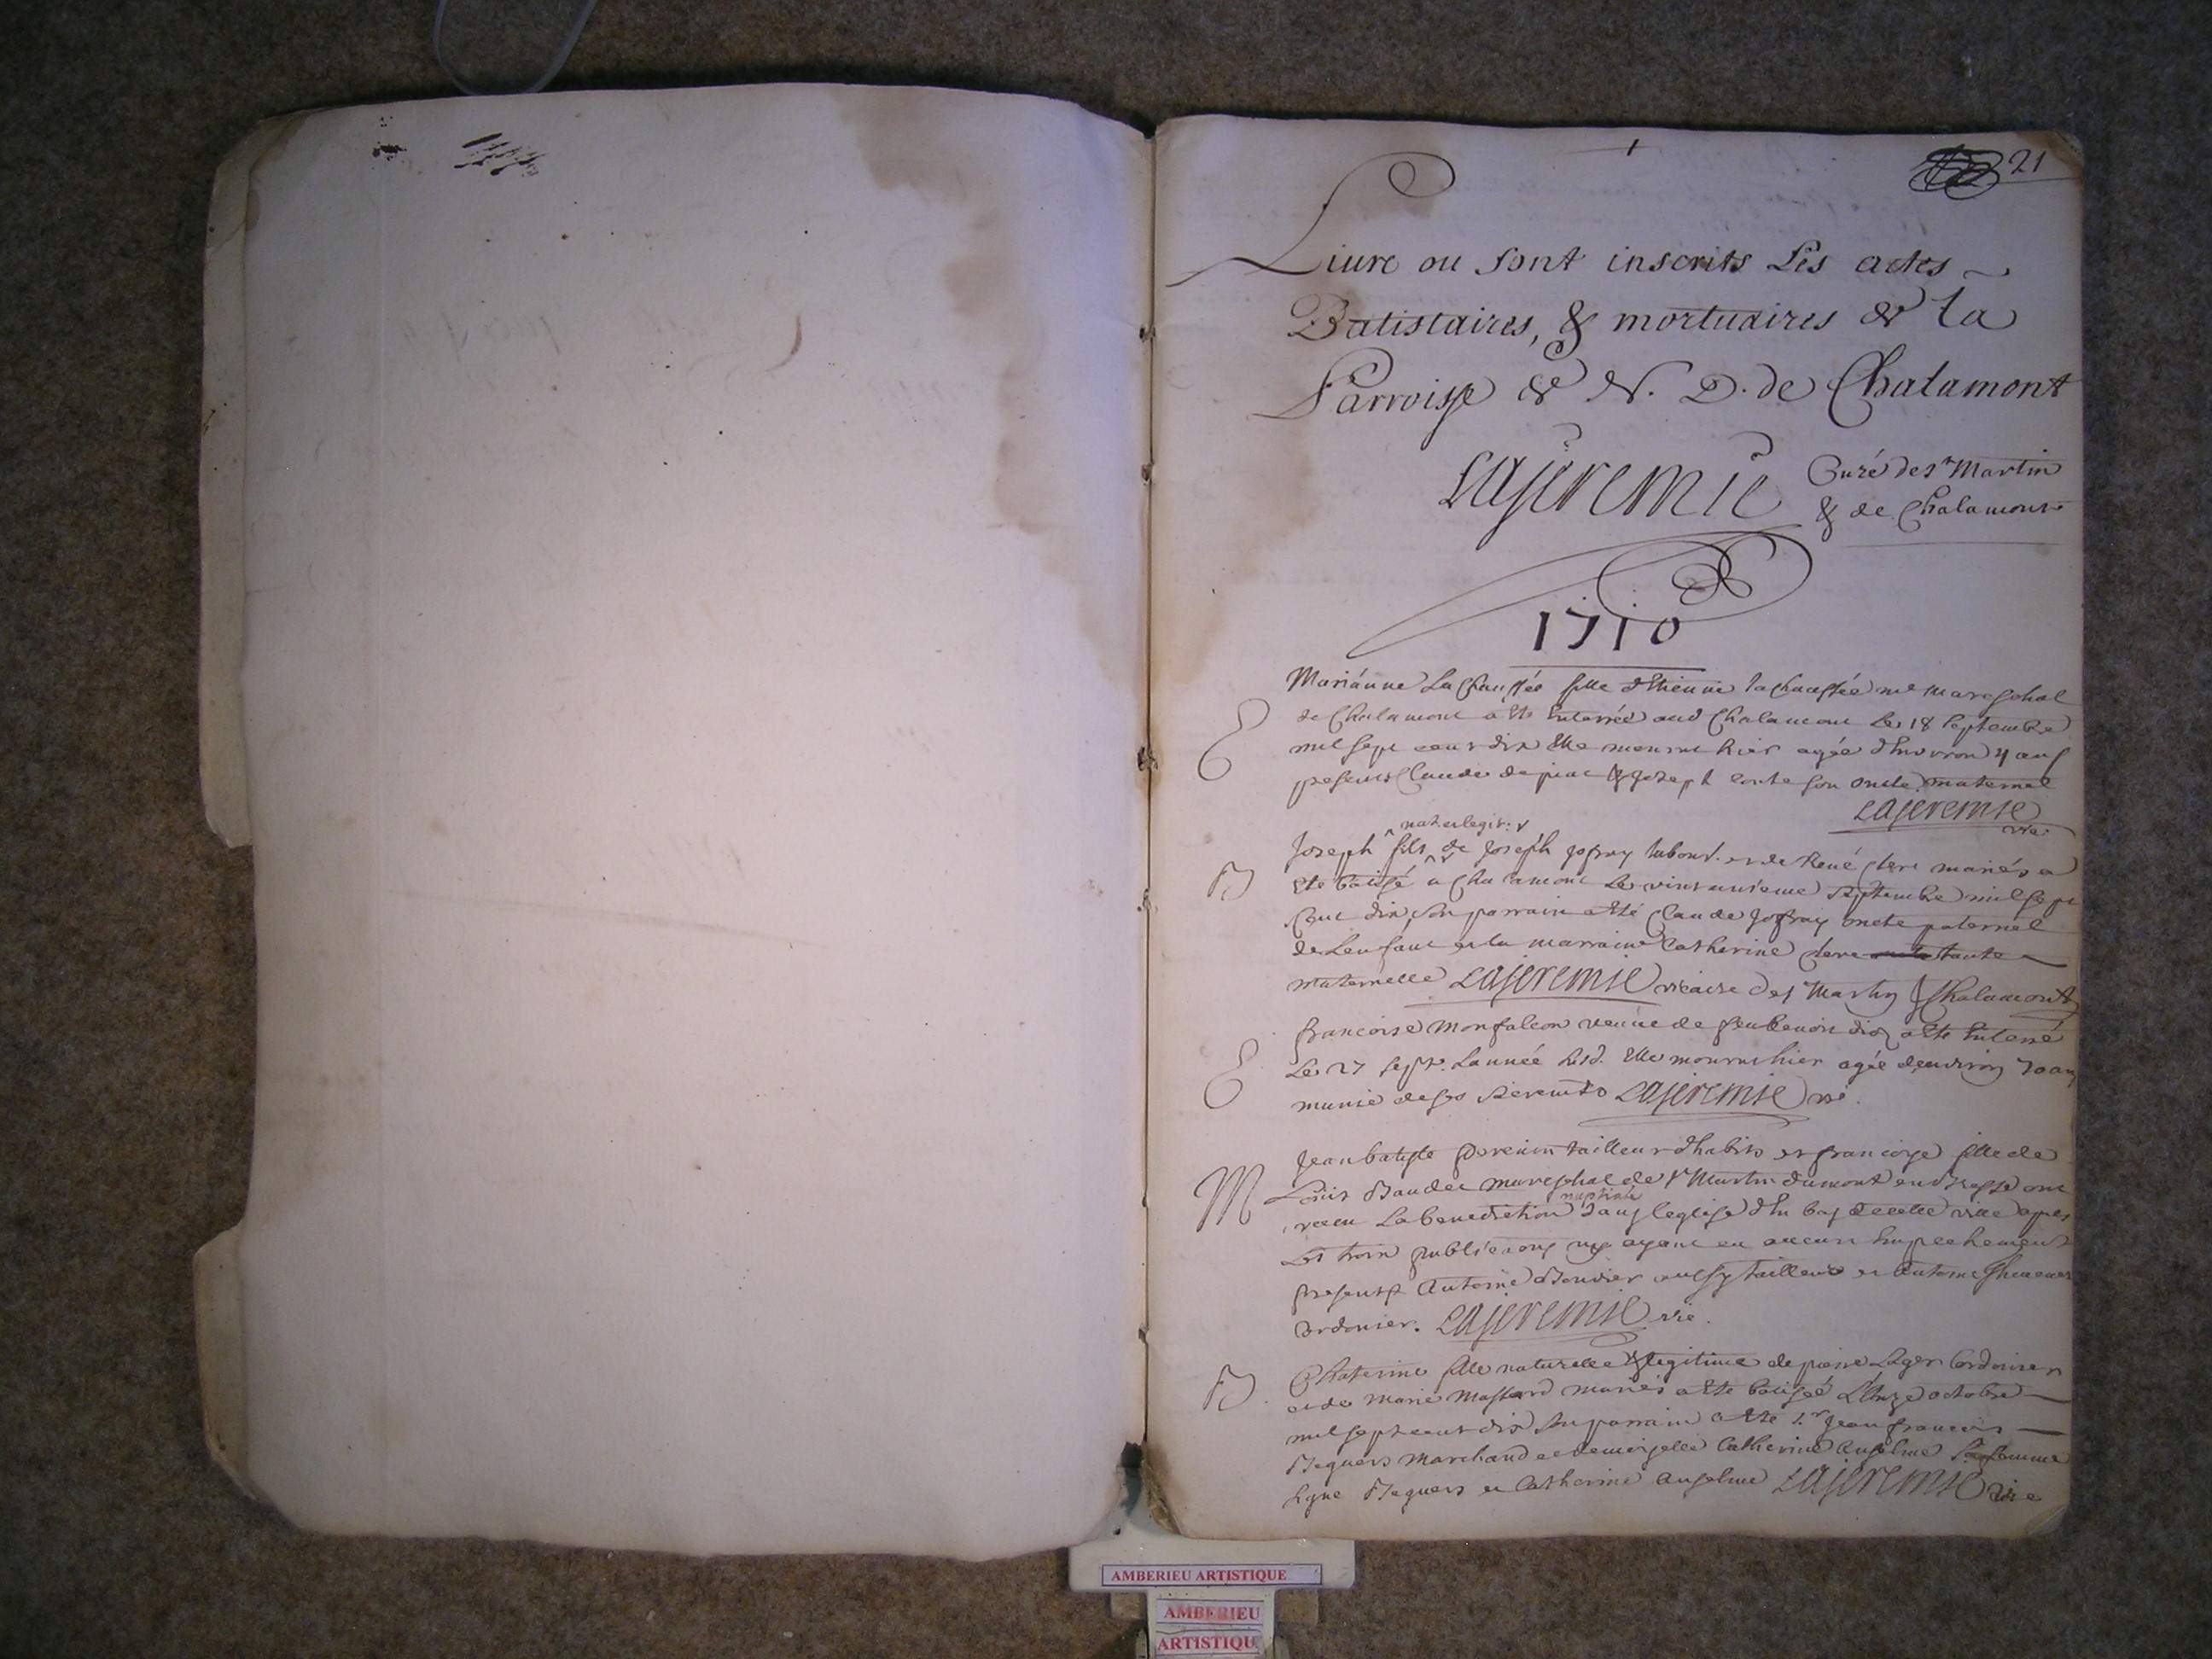 21
Liure ou sont inscrits Les actes
Batistaires, & mortuaires de la
Parroisse de N. D. de Chalamont
Lajeremie Curé de st Martin
& de Chalamont
1710
Mariánne La chaussée fille d'Etienne la chaussée me mareschal
de Chalamont a ete Enterrée aud Chalamont Le 18 septembre
mil sept cent dix Elle mourut hier agée d'environ 4 ans
presents Claude & Joseph conte son oncle maternel
Lajeremie
vic.
nat. et legit:
Joseph fils de Joseph Jofray labour. et de René clere mariés a
Eté batisé a Chalamont Le vint unieme septembre mil sept
Cent dix, son parrain a Eté Claude Joffray oncle paternel
de L'enfant et la marraine Catherine clere tante
maternelle Lajeremie vicaire de st Martin & Chalamont
francoise Monfalcon veuue de feu benoit a ete Enterré
Le 27 sept. L'année Elle mourut hier agée d'environ 70 ans
munie de ses Lajeremie vic.
Jean batiste tailleur d'habits et francoise fille de
Louis Baudet mareschal de st Martin dumont en Bresse ont
nuptiale
receu La benediction dans l'eglise d'En bas de cette ville apres
Les trois publications n'y ayant eu aucun Empechement
presents Antoine Bouvier aussy tailleur et Antoine
Cordonier. Lajeremie vic.
Chaterine fille naturelle & legitime de pierre Lager Cordonier
et de Marie mariés a ete batisée L'onze octobre
mil sept cent dix son parrain a ete sr Jean francois
Beguers marchand et demoiselle Catherine Anselme sa femme
signe Beguers et Catherine Anselme Lajeremie vic
E
B
E
M
B
AMBERIEU ARTISTIQUE
AMBERIEU
ARTISTIQU